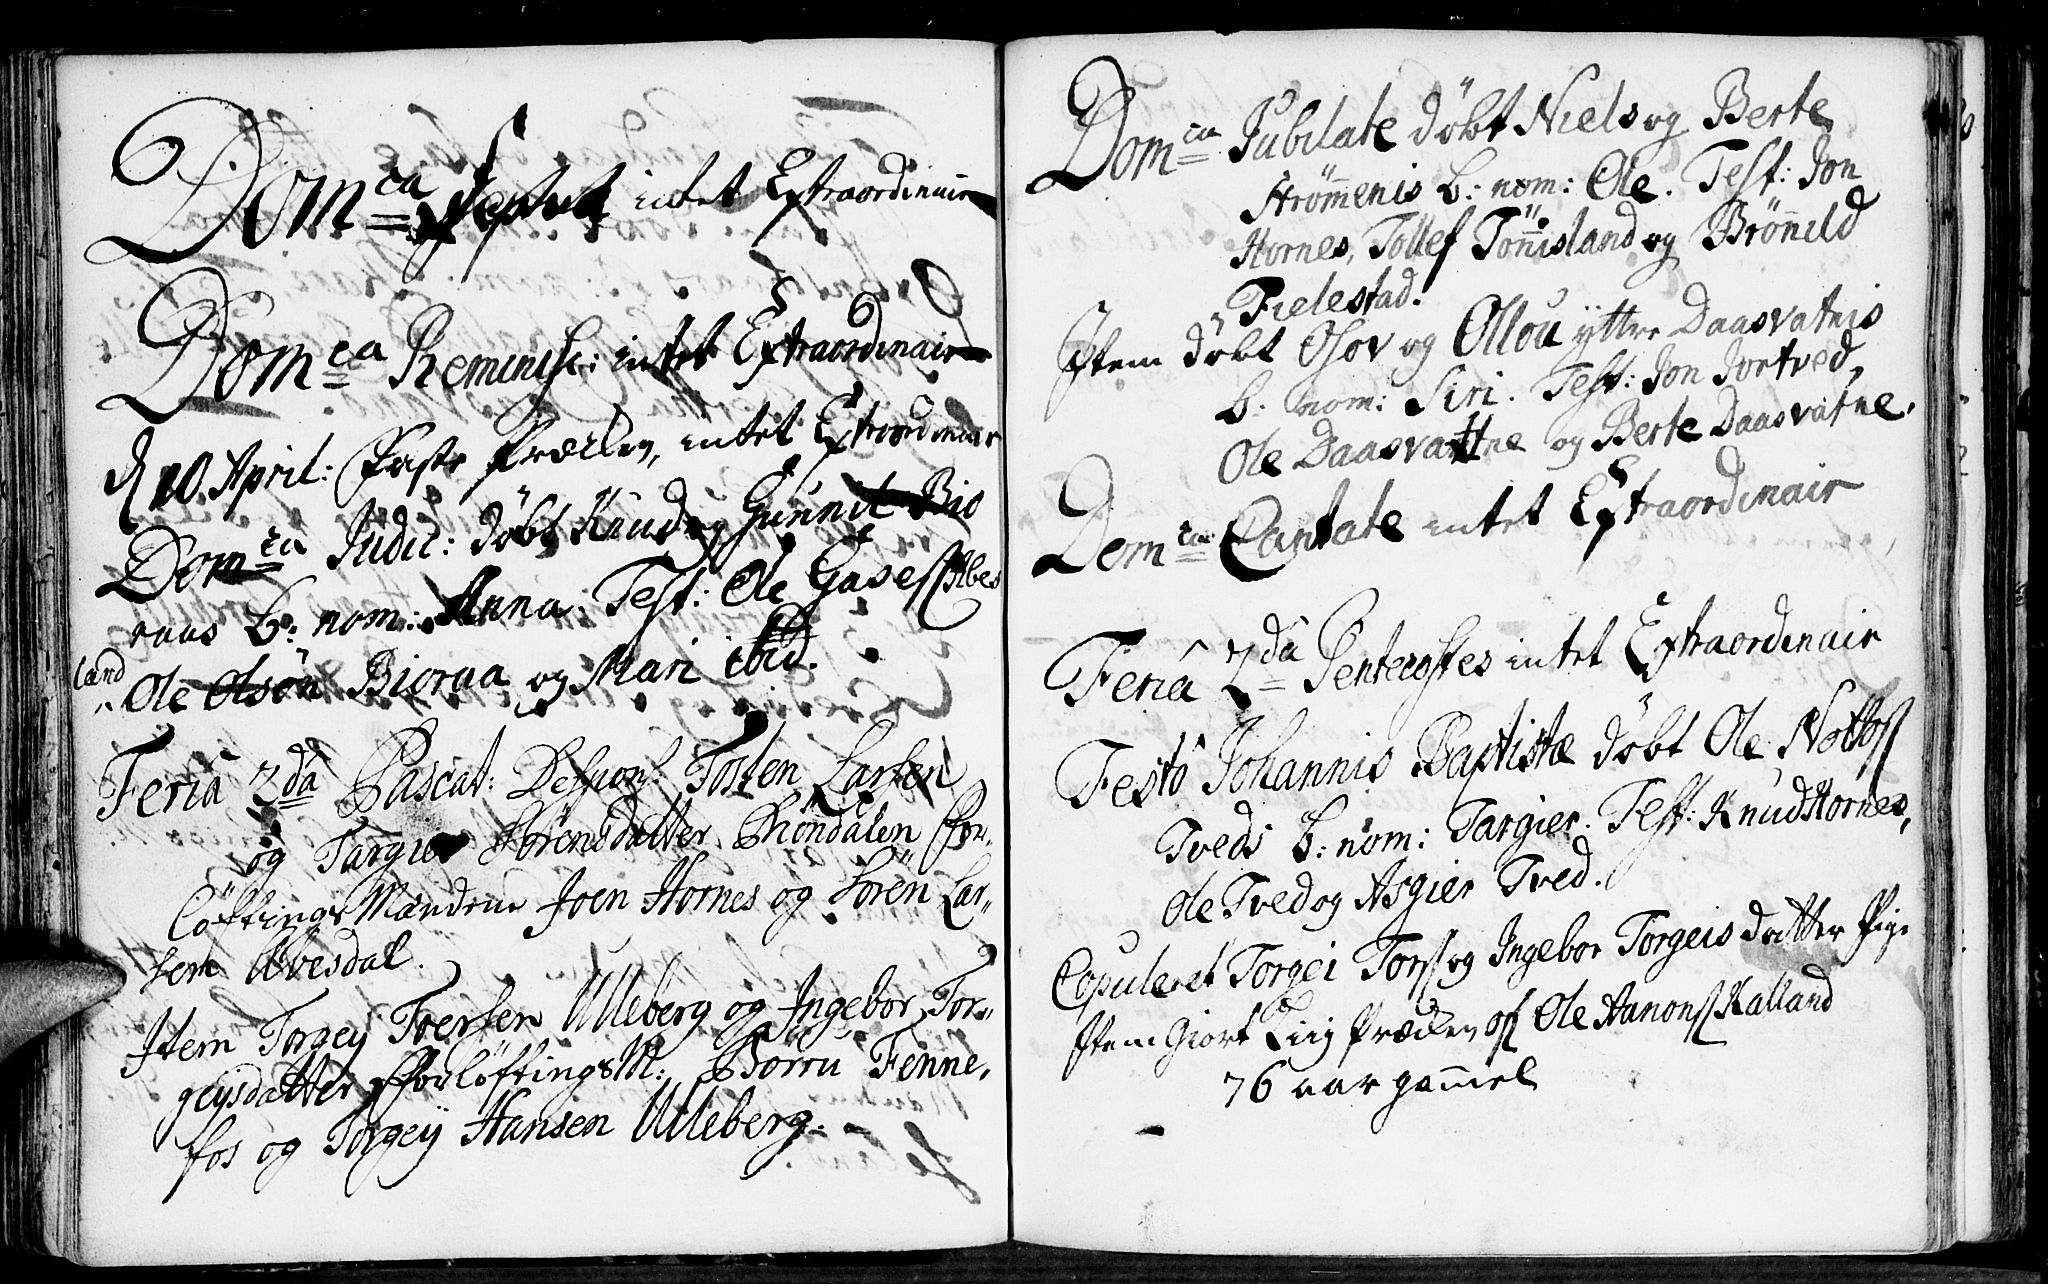 Dom<sup>ca</sup> intet Extraordinair
Dom<sup>ca</sup> Reminisc: intet Extraordinair
d 10 April: Faste Prædken, intet Extraordinair
Dom<sup>ca</sup> Judic: döbt Knud og Gunnil Bio
raas b: nom: Anna. Test: Ole Gases
land Ole Olsön Bioraa og Mari ibid.
Feria 2<sup>da</sup> Pascat: Despons: Tosten Larsen
og Targier Sörensdatter Röndalen for-
löftings Mændene Joen Hornes og Sören Lar-
sen Abesdal.
Item Torgey Iversen Ulleberg og Ingebor Tor-
geysdatter Forlöftings M: Borru Fenne-
fos og Torgey Hansen Ulleberg.
Dom<sup>ca</sup> Jubilate döbt Niels og Berte
Strömmenis b: nom: Ole. Test: Jon
Hornes, Tollef Tönnisland og Brönnild
Fielestad.
Item döbt Osov og Ollou yttre Daasvatnis
b: nom: Siri. Test: Jon Jortved,
Ole Daasvattne og Berte Daasvatne.
Dom<sup>ca</sup> Cantate intet Extraordinair
Feria 2<sup>da</sup> Pentecostes intet Extraordinair
Festo Johannis Baptistæ döbt Ole
Tveds b: nom: Targier. Test: Knud Hornes,
Ole Tved og Asgier Tved.
Copuleret Torgei og Ingebor Torgeis datter Pige
Item Giort Liig Prædken of Ole Aanons Kalland
76 aar gammel